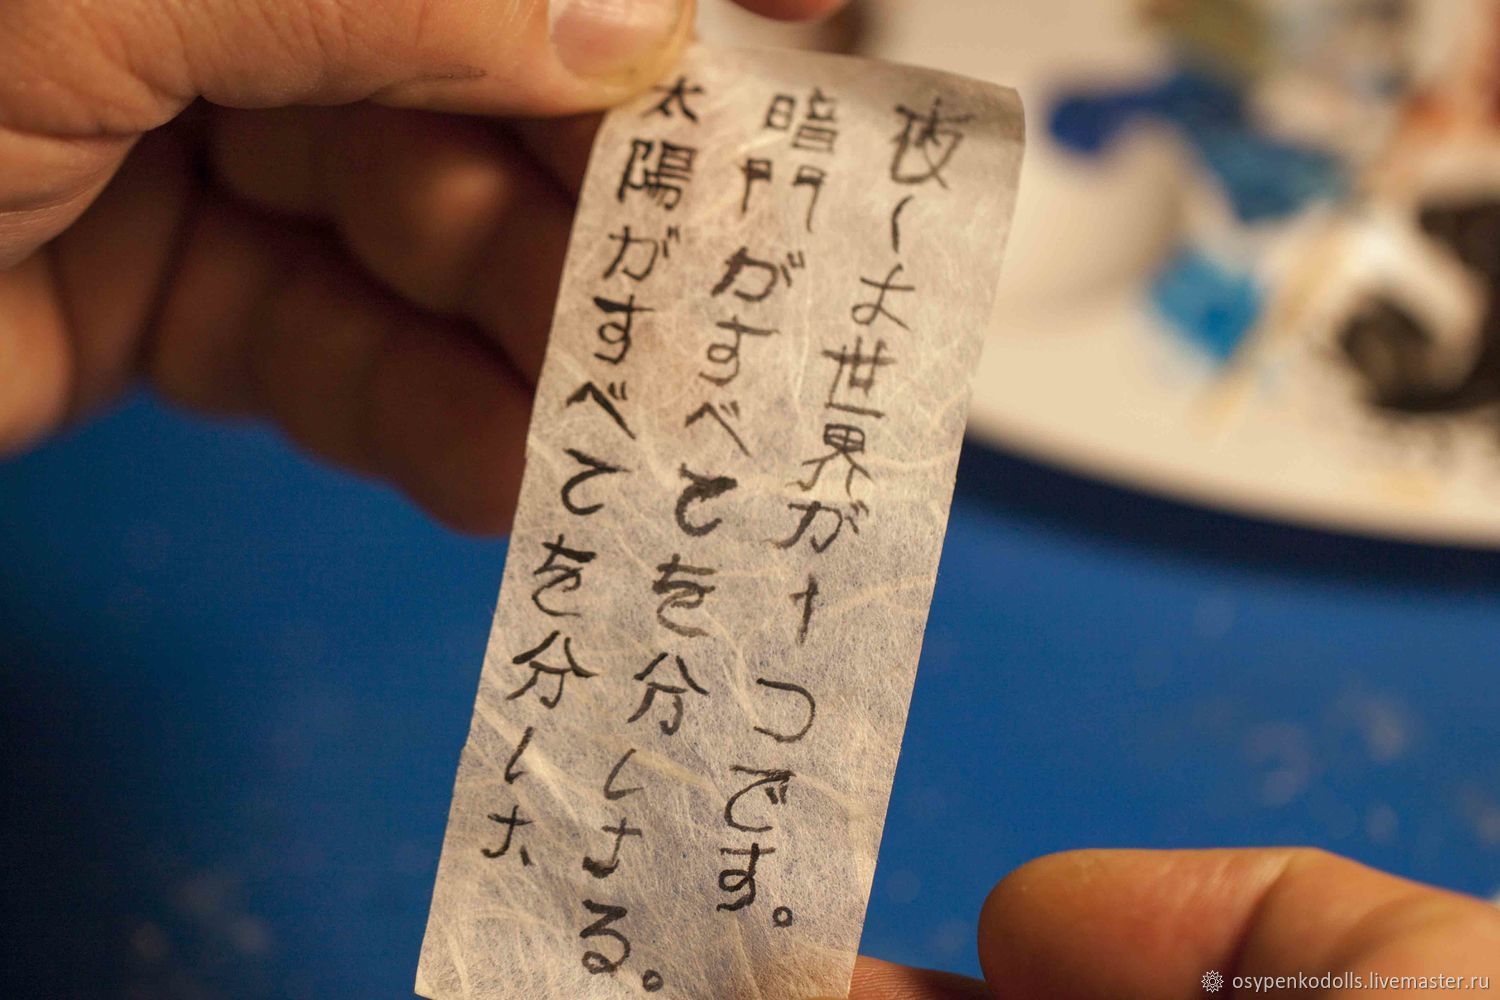 夜は世界が1つです。
暗門がすべてを分しまする。
太陽がすべてを分した
osypenkodolls.livemaster.ru